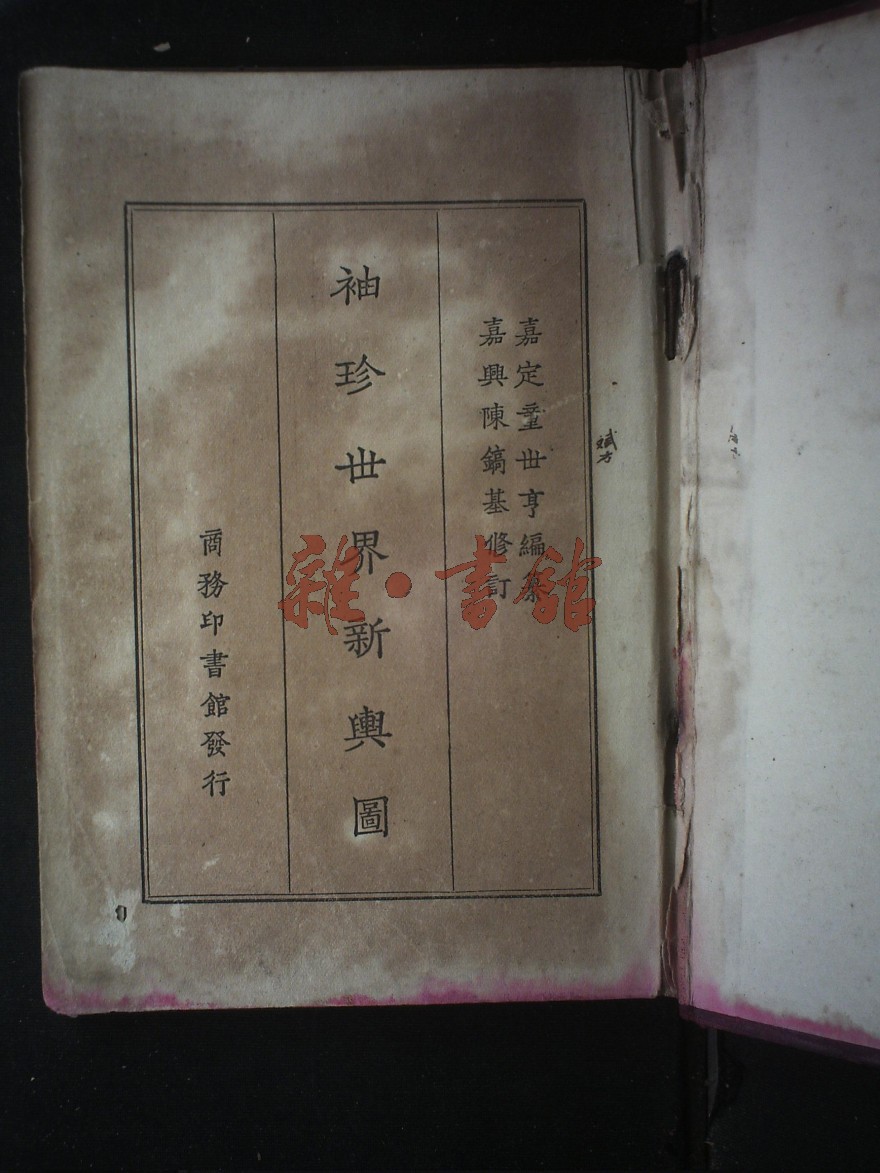 嘉定童世亨編纂
嘉興陳鎬基修訂
袖珍世界新輿圖
商務印書館發行
雜·書館